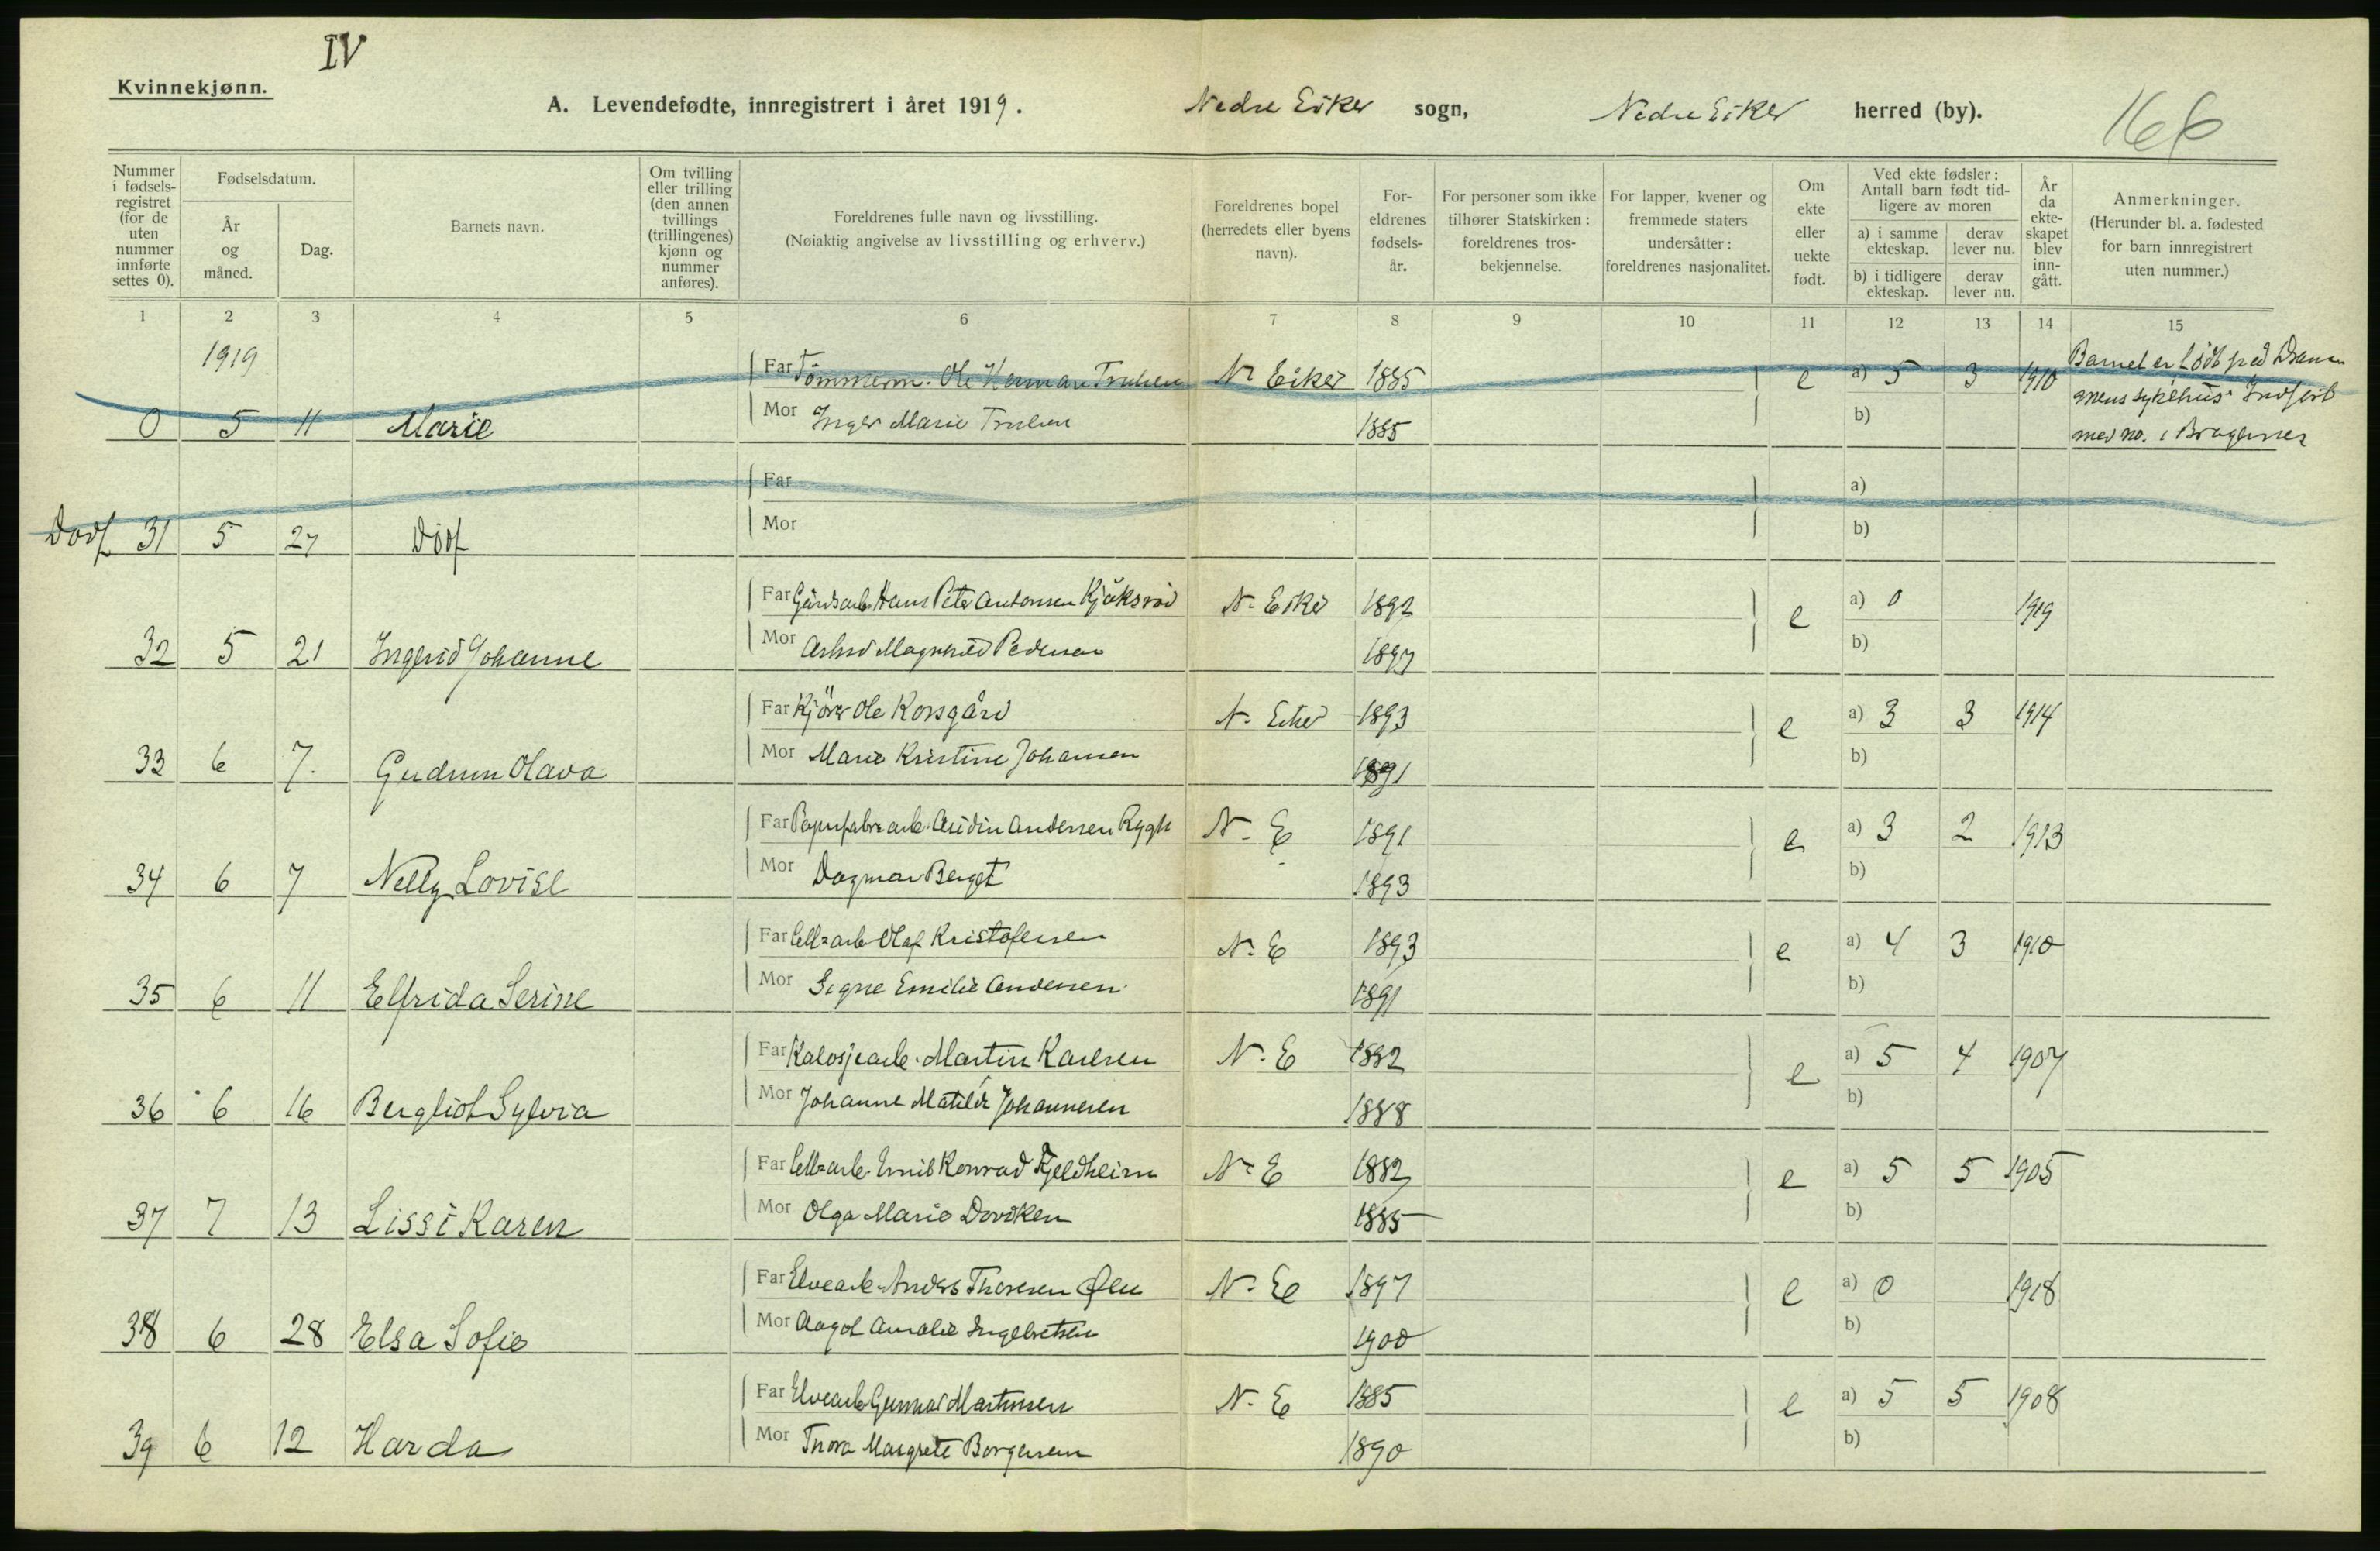 IV
Kvinnekjønn.
A. Levendefødte, innregistrert i året 1919. Nedre Eiker sogn, Nedre Eiker herred (by). 166
Nummer i fødsels-registret (for de uten nummer innførte settes 0).
Fødselsdatum.
År og måned.
Dag.
Barnets navn.
Om tvilling eller trilling (den annen tvillings (trillingenes) kjønn og nummer anføres).
Foreldrenes fulle navn og livsstilling.
(Nøiaktig angivelse av livsstilling og erhverv.)
Foreldrenes bopel (herredets eller byens navn).
For-eldrenes fødsels-år.
For personer som ikke tilhører Statskirken: foreldrenes tros-bekjennelse.
For lapper, kvener og fremmede staters undersåtter: foreldrenes nasjonalitet.
Om ekte eller uekte født.
Ved ekte fødsler: Antall barn født tid-ligere av moren
a) i samme ekteskap.
derav lever nu.
b) i tidligere ekteskap.
derav lever nu.
År da ekte-skapet blev inn-gått.
Anmerkninger.
(Herunder bl. a. fødested for barn innregistrert uten nummer.)
1 2 3 4 5 6 7 8 9 10 11 12 13 14 15
1919
Far Tømmerm. Ole Herman Trulsen N. Eiker 1885 e a) 5 3 1910 Barnet er født på Dram
mens sykehus Indført
0 5 11 Marie Mor Inger Marie Trulsen 1885 b) med no. i Bragernes
Far a)
Dødf 31 5 27 Dødf Mor b)
Far Gårdsarb. Hans Peter Antonsen Kjøksrød N. Eiker 1892 e a) 0 1919
32 5 21 Ingerid Johanne Mor Magnhild Pedersen 1897 b)
Far Kjører Ole Korsgård N. Eiker 1893 e a) 3 3 1914
33 6 7. Gudrun Olava Mor Marie Kristine Johansen 1891 b)
Far Papirfabr.arb. Audin Andersen Rygh N. E 1891 e a) 3 2 1913
34 6 7 Nelly Lovise Mor Dagmar Berget 1893 b)
Far Cell=arb Olaf Kristofersen N. E 1893 e a) 4 3 1910
35 6 11 Elfrida Serine Mor Signe Emilie Andersen 1891 b)
Far Kalosjearb. Martin Karlsen N. E 1882 e a) 5 4 1907
36 6 16 Bergliot Sylvia Mor Johanne Matilde Johannesen 1888 b)
Far Cell=arb. Emil Konrad Fjeldheim N. E 1882 e a) 5 5 1905
37 7 13 Lissi Karen Mor Olga Marie Doviken 1885 b)
Far Elvearb. Anders Thoresen Øen N. E 1897 e a) 0 1918
38 6 28 Elsa Sofie Mor Aagot Amalie Ingebretsen 1900 b)
Far Elvearb Gunnar Martinsen N. E 1885 e a) 5 5 1908
39 6 12 Harda Mor Thora Margrete Borgersen 1890 b)